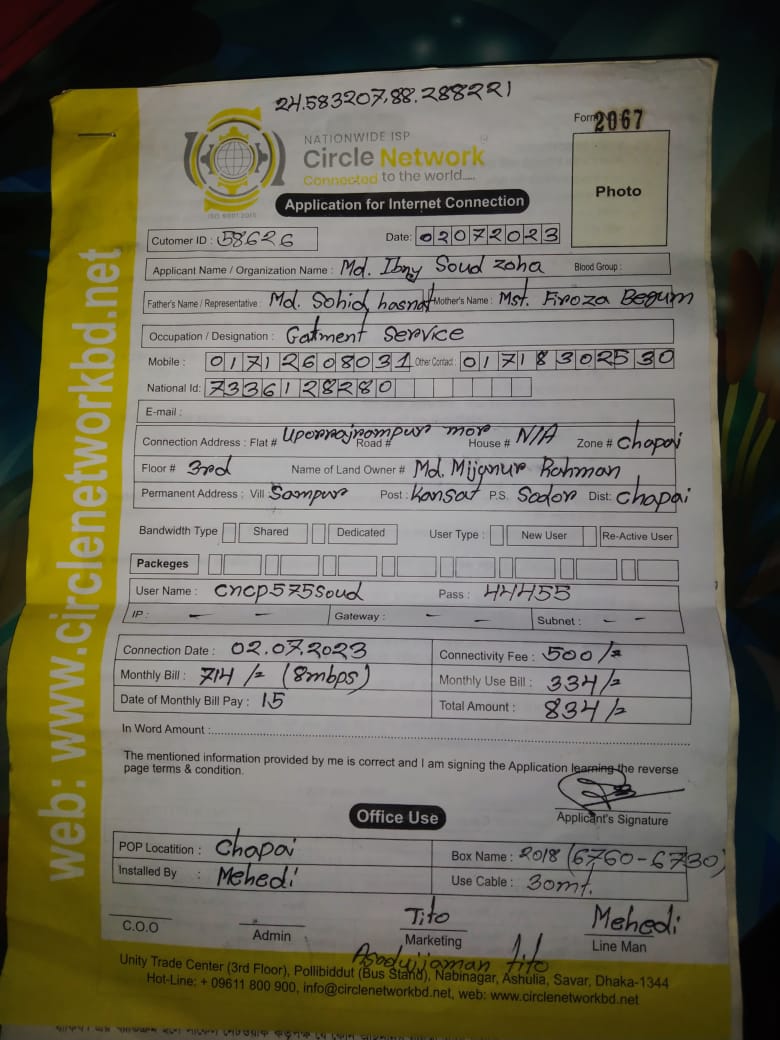 24.583207,88.288221
Form No. 2067
NATIONWIDE ISP
Circle Network
Connected to the world.....
ISO 9001:2015
Photo
Application for Internet Connection
Cutomer ID : 58626 Date: 02072023
Applicant Name / Organization Name : Md. Ibny Soud zoha Blood Group :
Father's Name / Representative : Md. Sohid hasnat Mother's Name : Mst. Firoza Begum
Occupation / Designation : Gatment Service
Mobile : 01712608031 Other Contact : 01718302530
National Id: 7336128280
E-mail :
Connection Address : Flat # Uporrajrampur mor Road # House # N/A Zone # Chapai
Floor # 3rd Name of Land Owner # Md. Mijanur Rahman
Permanent Address : Vill Sampur Post : Kansat P.S. Sador Dist: Chapai
Bandwidth Type Shared Dedicated User Type : New User Re-Active User
Packeges
User Name : cncp575soud Pass : 44455
IP : – – Gateway : – – Subnet : – –
Connection Date : 02.07.2023 Connectivity Fee : 500/=
Monthly Bill : 714/= (8mbps) Monthly Use Bill : 334/=
Date of Monthly Bill Pay : 15 Total Amount : 834/=
In Word Amount :
The mentioned information provided by me is correct and I am signing the Application learning the reverse
page terms & condition.
Applicant's Signature
Office Use
POP Locatition : Chapai Box Name : 2018 (6760-6730)
Installed By : Mehedi Use Cable : 30mt.
Tito Mehedi
C.O.O Admin Marketing Line Man
Asadujjaman tito
Unity Trade Center (3rd Floor), Pollibiddut (Bus Stand), Nabinagar, Ashulia, Savar, Dhaka-1344
Hot-Line: + 09611 800 900, info@circlenetworkbd.net, web: www.circlenetworkbd.net
web: www.circlenetworkbd.net